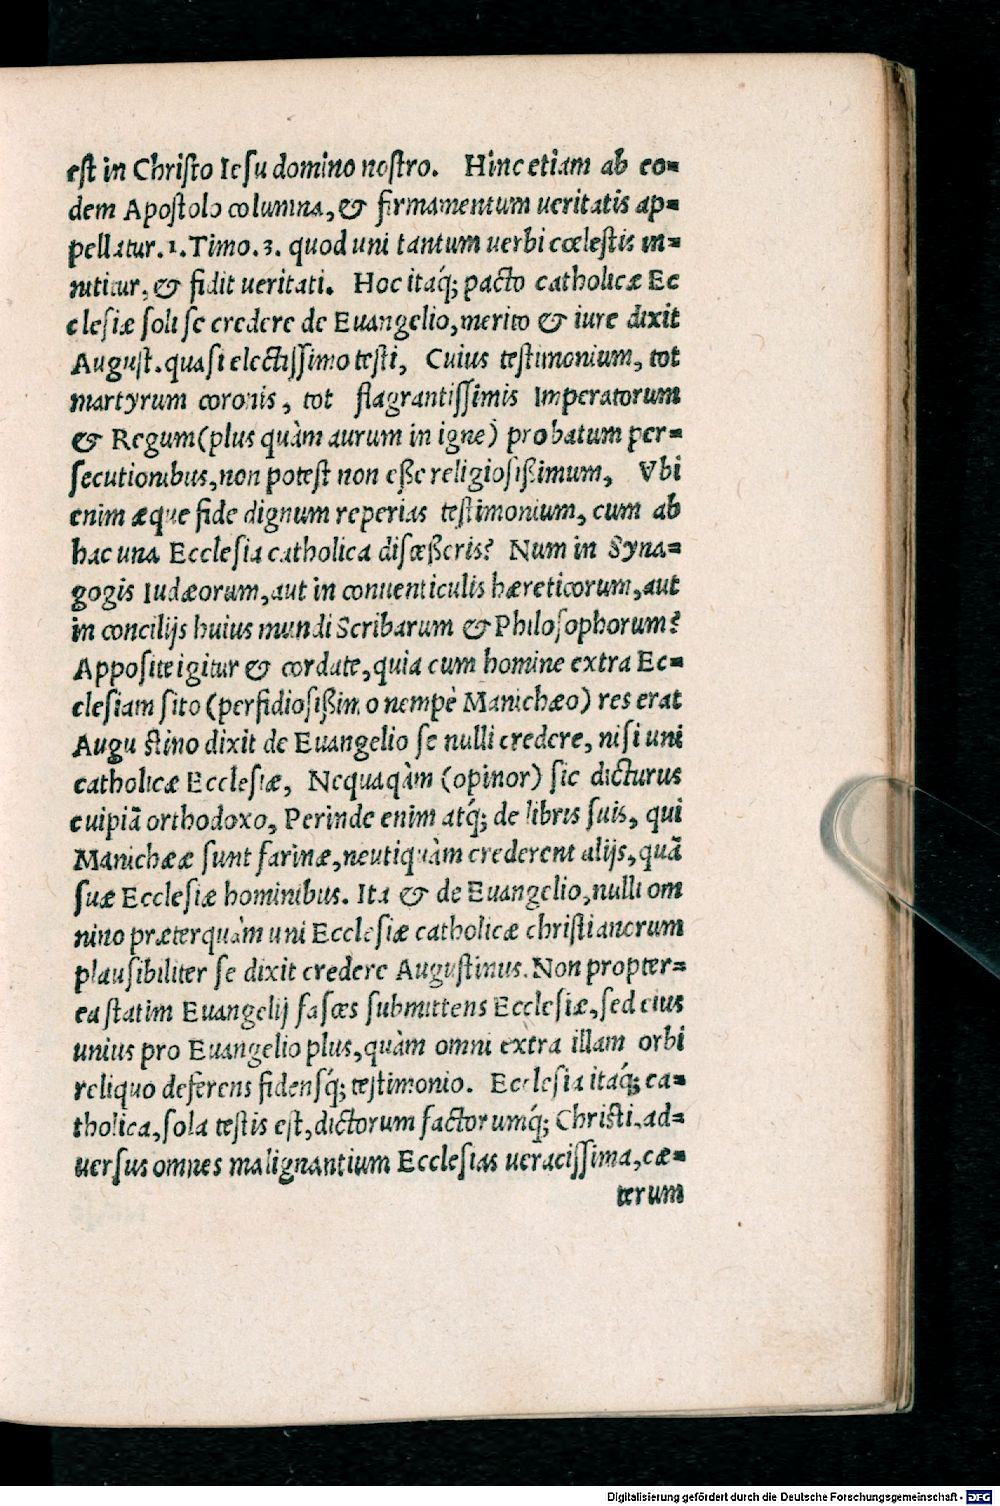 est in Christo Iesu domino nostro. Hinc etiam ab eo=
dem Apostolo columna, & firmamentum ueritatis ap=
pellatur. 1. Timo. 3. quod uni tantum uerbi cœlestis in=
nititur, & fidit ueritati. Hoc itaq́; pacto catholicæ Ec
clesiæ soli se credere de Euangelio, merito & iure dixit
August. quasi electissimo testi, Cuius testimonium, tot
martyrum coronis, tot flagrantissimis Imperatorum
& Regum (plus quàm aurum in igne) probatum per=
secutionibus, non potest non eße religiosißimum, Vbi
enim æque fide dignum reperias testimonium, cum ab
hac una Ecclesia catholica discæßeris? Num in Syna=
gogis Iudæorum, aut in conuenticulis hæreticorum, aut
in concilijs huius mundi Scribarum & Philosophorum?
Apposite igitur & cordate, quia cum homine extra Ec=
clesiam sito (perfidiosißimo nempè Manichæo) res erat
Augustino dixit de Euangelio se nulli credere, nisi uni
catholicæ Ecclesiæ, Nequaqàm (opinor) sic dicturus
cuipiã orthodoxo, Perinde enim atq́; de libris suis, qui
Manichææ sunt farinæ, neutiquàm crederent alijs, quã
suæ Ecclesiæ hominibus. Ita & de Euangelio, nulli om
nino præterquàm uni Ecclesiæ catholicæ christianorum
plausibiliter se dixit credere Augustinus. Non propter=
ea statim Euangelij fasces submittens Ecclesiæ, sed eius
unius pro Euangelio plus, quàm omni extra illam orbi
reliquo deferens fidensq́; testimonio. Ecclesia itaq́; ca=
tholica, sola testis est, dictorum factorumq́; Christi, ad=
uersus omnes malignantium Ecclesias ueracissima, cæ=
terum
Digitalisierung gefördert durch die Deutsche Forschungsgemeinschaft - DFG